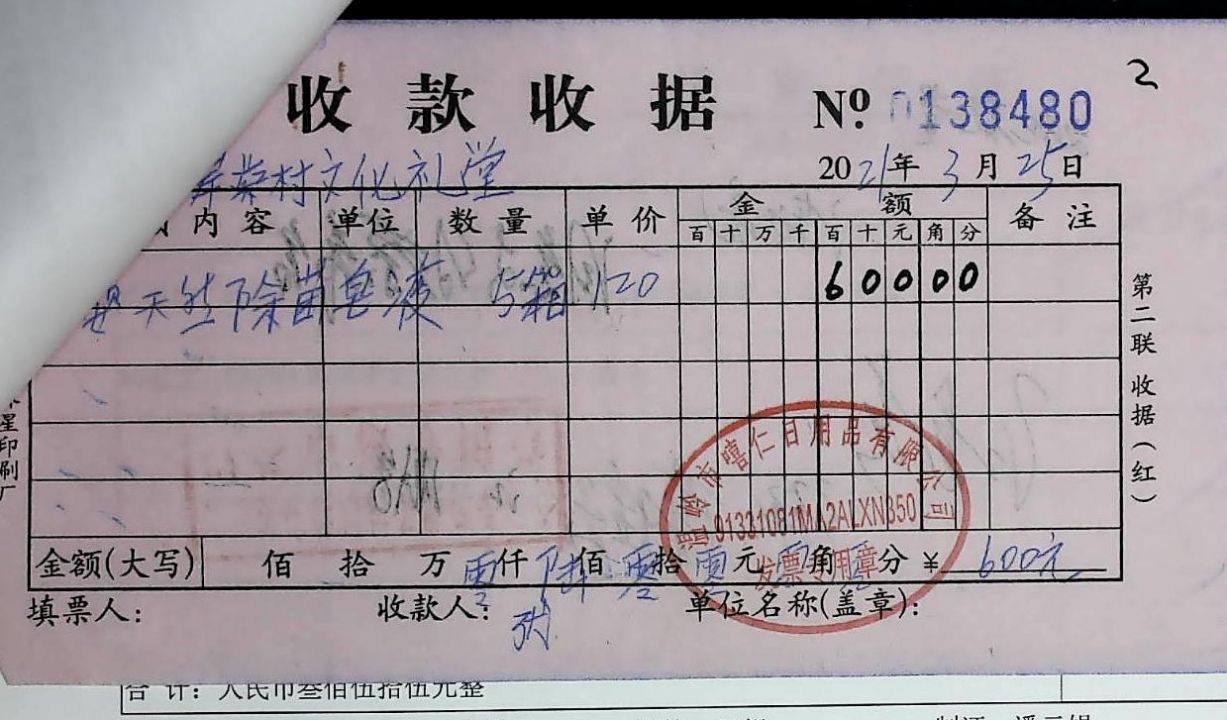 2
收款收据 Nº 0138480
村文化礼堂 2021年3月25日
内容 单位 数量 单价 金额 备注
百十万千百十元角分
天然除菌皂液 5箱 120 60000
第二联 收据(红)
星印刷厂
温岭市嘻仁日用品有限公司
91331081MA2ALXN350
发票专用章
金额(大写) 佰 拾 万 零仟 陆佰 零拾 零元 零角 零分 ¥ 600元
填票人: 收款人: 张 单位名称(盖章):
合计: 人民币叁佰伍拾伍元整